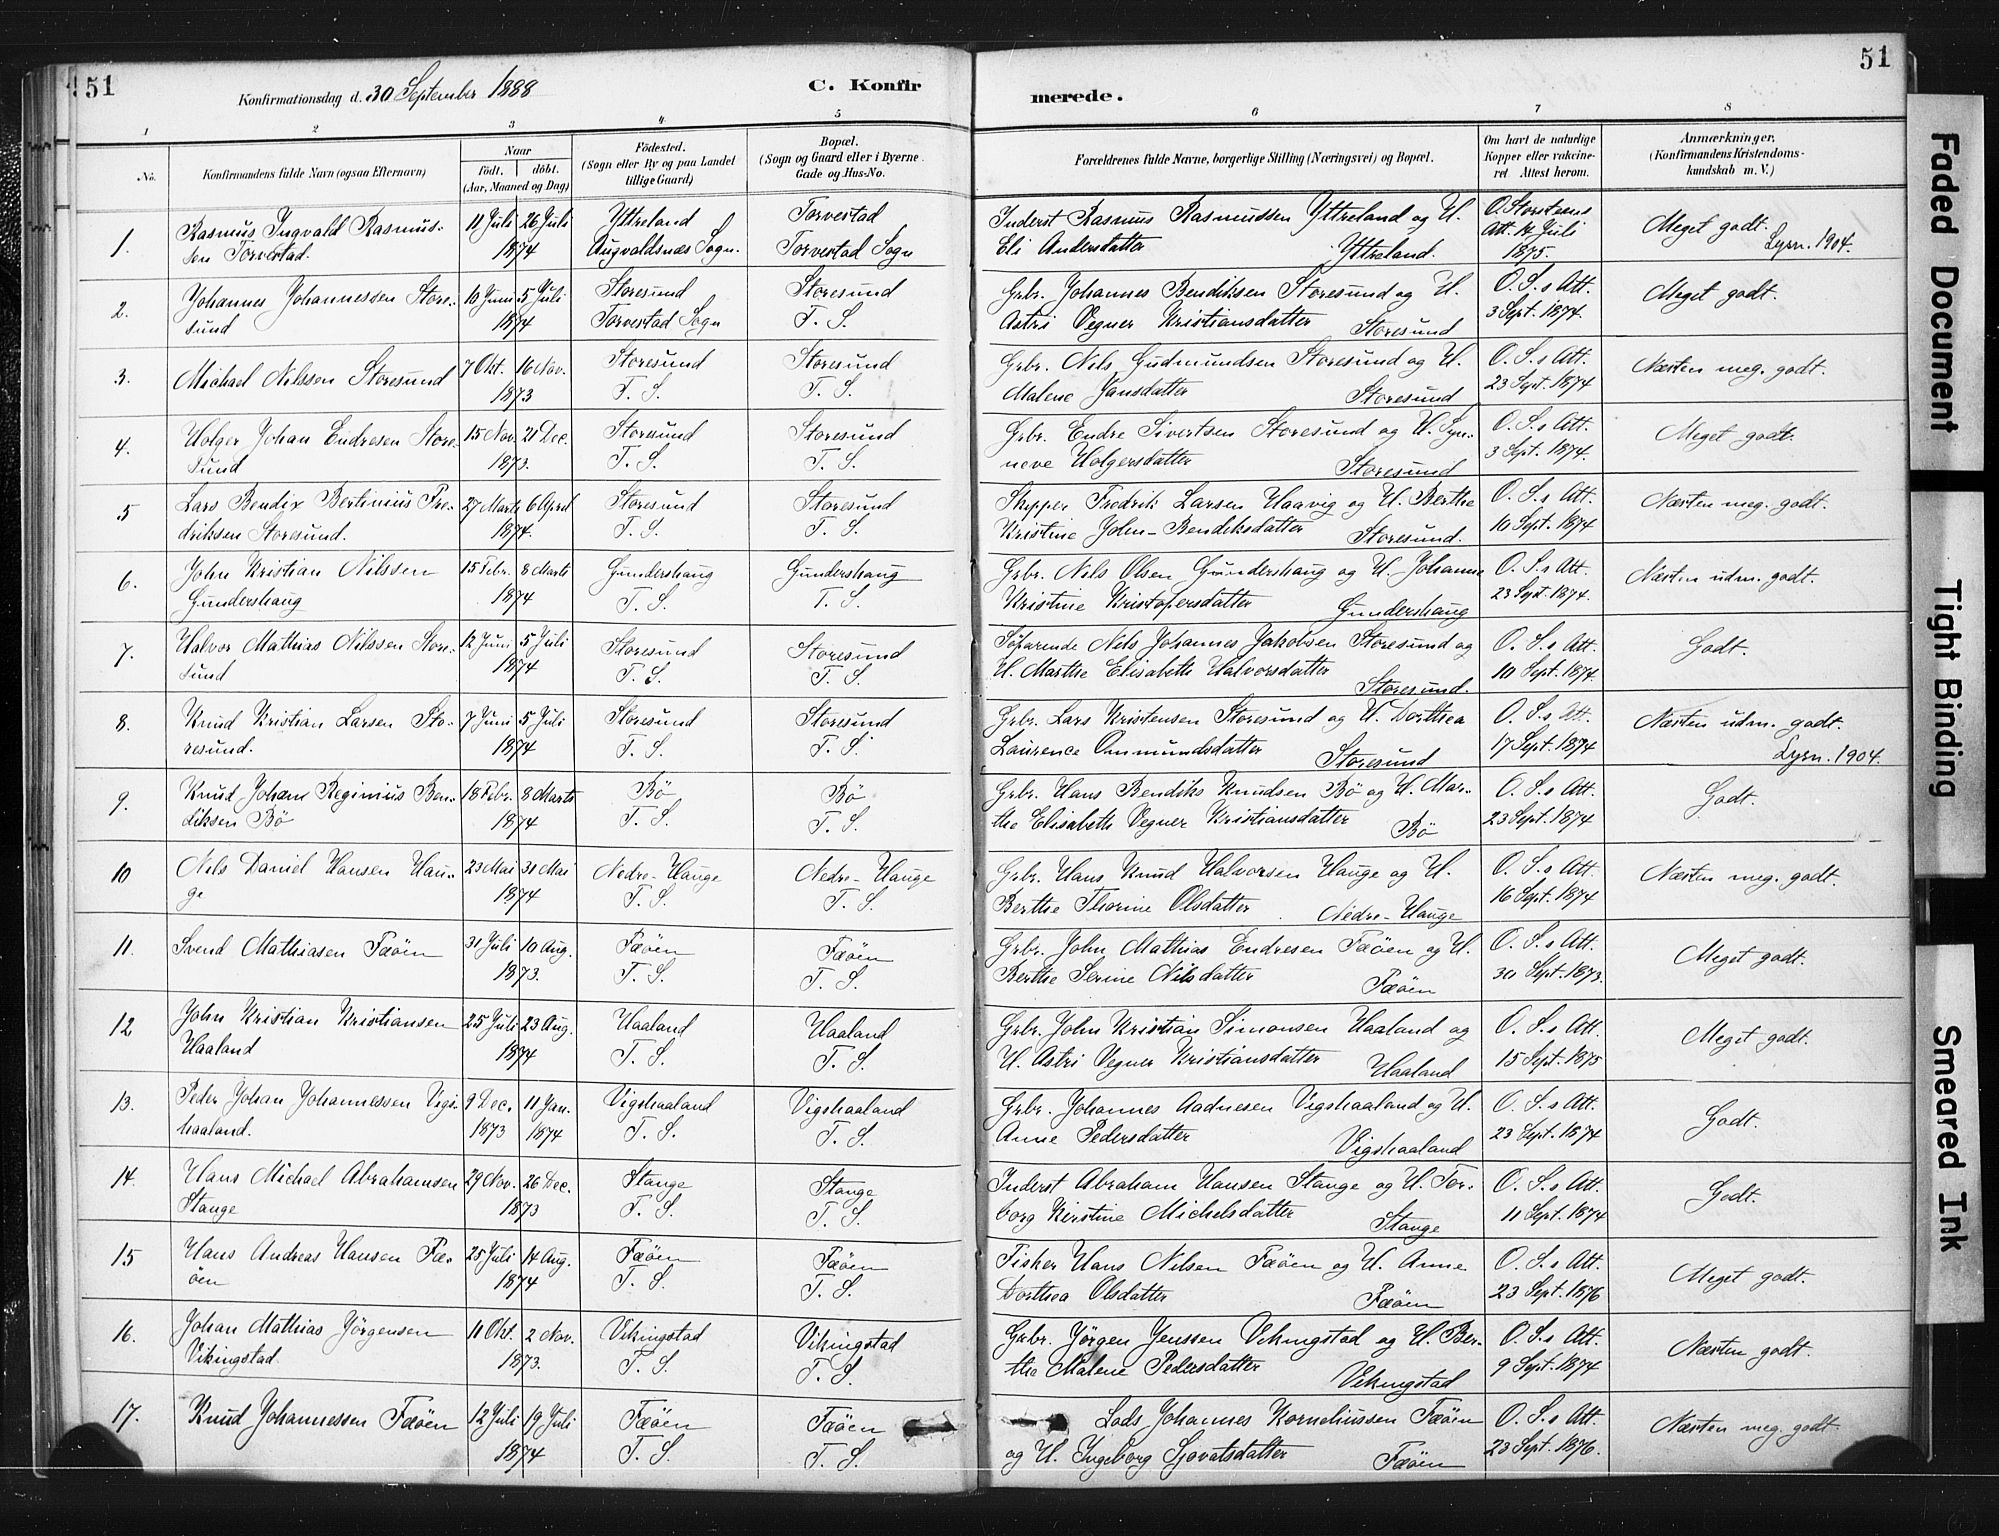 51
51
Konfirmationsdag d. 30 September 1888
C. Konfirmerede.
1 2 3 4 5 6 7 8
No.
Konfirmandens fulde Navn (ogsaa Efternavn)
Naar
födt. döbt.
(Aar, Maaned og Dag)
Födested.
(Sogn eller By og paa Landet
tillige Gaard)
Bopæl.
(Sogn og Gaard eller i Byerne
Gade og Hus-No.
Forældrenes fulde Navne, borgerlige Stilling (Næringsvei) og Bopæl.
Om havt de naturlige
Kopper eller vakcine-
ret. Attest herom.
Anmærkninger.
(Konfirmandens Kristendoms-
kundskab m. V.)
1. Rasmus Ingvald Rasmus- 11 Juli 26 Juli Yttreland Torvestad Inderst Rasmus Rasmussen Yttreland og H. O. Storsteens Meget godt.
sen Torvestad. 1874 Augvaldsnæs Sogn. Torvestad Sogn Eli Andersdatter Yttreland. Att. 14 Juli 1875. Lysn. 1904.
2. Johannes Johannessen Store- 10 Juni 5 Juli Storesund Storesund Grbr. Johannes Bendiksen Storesund og H. O. S.s Att. Meget godt.
sund 1874 Torvestad Sogn T. S. Astri Vegner Kristiansdatter Storesund 3 Sept. 1874.
3. Michael Nilssen Storesund 7 Okt. 16 Nov. Storesund Storesund Grbr. Nils Gudmundsen Storesund og H. O. S.s Att. Næsten meg. godt.
1873 T. S. T. S. Malene Jansdatter Storesund 23 Sept. 1874
4. Holger Johan Endresen Store- 15 Nov. 21 Dec. Storesund Storesund Grbr. Endre Sivertsen Storesund og H. Syn- O. S.s Att. Meget godt.
sund 1873. T. S. T. S. neve Holgersdatter Storesund 3 Sept. 1874.
5 Lars Bendix Bertinius Fre- 27 Marts 6 April Storesund Storesund Skipper Fredrik Larsen Haavig og H. Berthe O. S.s Att. Næsten meg. godt.
driksen Storesund. 1874. T. S. T. S. Kristine John-Bendiksdatter Storesund. 10 Sept. 1874
6. John Kristian Nilssen 15 Febr. 8 Marts Gundershaug Gundershaug Grbr. Nils Olsen Gundershaug og H. Johanne O. S.s Att. Næsten udm. godt.
Gundershaug 1874 T. S. T. S. Kristine Kristofersdatter Gundershaug 23 Sept. 1874.
7. Halvor Mathias Nilssen Store- 12 Juni 5 Juli Storesund Storesund Söfarende Nels Johannes Jakobsen Storesund og O. S.s Att. Godt.
sund 1874 T. S. T. S. H. Marthe Elisabeth Halvorsdatter Storesund. 10 Sept. 1874.
8. Knud Kristian Larsen Sto- 7 Juni 5 Juli Storesund Storesund Grbr. Lars Kristensen Storesund og H. Dorthea O. S.s Att. Næsten udm. godt.
resund. 1874 T. S. T. S. Laurence Ommundsdatter Storesund 17 Sept. 1874 Lysn. 1904.
9. Knud Johan Reginius Ben- 18 Febr. 8 Marts Bö Bö Grbr. Hans Bendiks Knudsen Bö og H. Mar- O. S.s Att. Godt.
diksen Bö 1874 T. S. T. S. the Elisabeth Vegner Kristiansdatter Bö 23 Sept. 1874
10 Nels Daniel Hansen Hau- 23 Mai 31 Mai Nedre-Hauge Nedre-Hauge Grbr. Hans Knud Halvorsen Hauge og H. O. S.s Att. Næsten meg. godt.
ge 1874 T. S. T. S. Berthe Thorine Olsdatter Nedre-Hauge 16 Sept. 1874
11. Svend Mathiasen Fæöen 31 Juli 10 Aug. Fæöen Fæöen Grbr. John Mathias Endresen Fæöen og H. O. S.s Att. Meget godt.
1873. T. S. T. S. Berthe Serine Nilsdatter Fæöen 30 Sept. 1873.
12 John Kristian Kristiansen 25 Juli 23 Aug. Haaland Haaland Grbr. John Kristian Simonsen Haaland og O. S.s Att. Meget godt.
Haaland 1874 T. S. T. S. H. Astri Vegner Kristiansdatter Haaland 15 Sept. 1875
13. Peder Johan Johannessen Vigs- 9 Dec. 11 Jan. Vigshaaland Vigshaaland Grbr. Johannes Aadnesen Vigshaaland og H. O. S.s Att. Godt.
haaland. 1873 1874 T. S. T. S. Anne Pedersdatter Vigshaaland 23 Sept. 1874
14. Hans Michael Abrahamsen 29 Nov. 26 Dec. Stange Stange Inderst Abraham Hansen Stange og H. Tor- O. S.s Att. Godt.
Stange 1873 T. S. T. S. borg Kirstine Michelsdatter Stange 11 Sept. 1874
15 Hans Andreas Hansen Fæ- 25 Juli 14 Aug. Fæöen Fæöen Fisker Hans Nilsen Fæöen og H. Anne O. S.s Att. Meget godt.
öen 1874 T. S. T. S. Dorthea Olsdatter Fæöen 23 Sept. 1876
16. Johan Mathias Jörgensen 11 Okt. 2 Nov. Vikingstad Vikingstad Grbr. Jörgen Jenssen Vikingstad og H. Ber- O. S.s Att. Næsten godt.
Vikingstad. 1873. T. S. T. S. the Malene Pedersdatter Vikingstad 9 Sept. 1874
17. Knud Johannessen Fæöen 12 Juli 19 Juli Fæöen Fæöen Lods Johannes Korneliussen Fæöen O. S.s Att. Næsten meg. godt.
1874 T. S. T. S. og H. Ingeborg Sjovatsdatter Fæöen 23 Sept. 1876.
Faded Document
Tight Binding
Smeared Ink